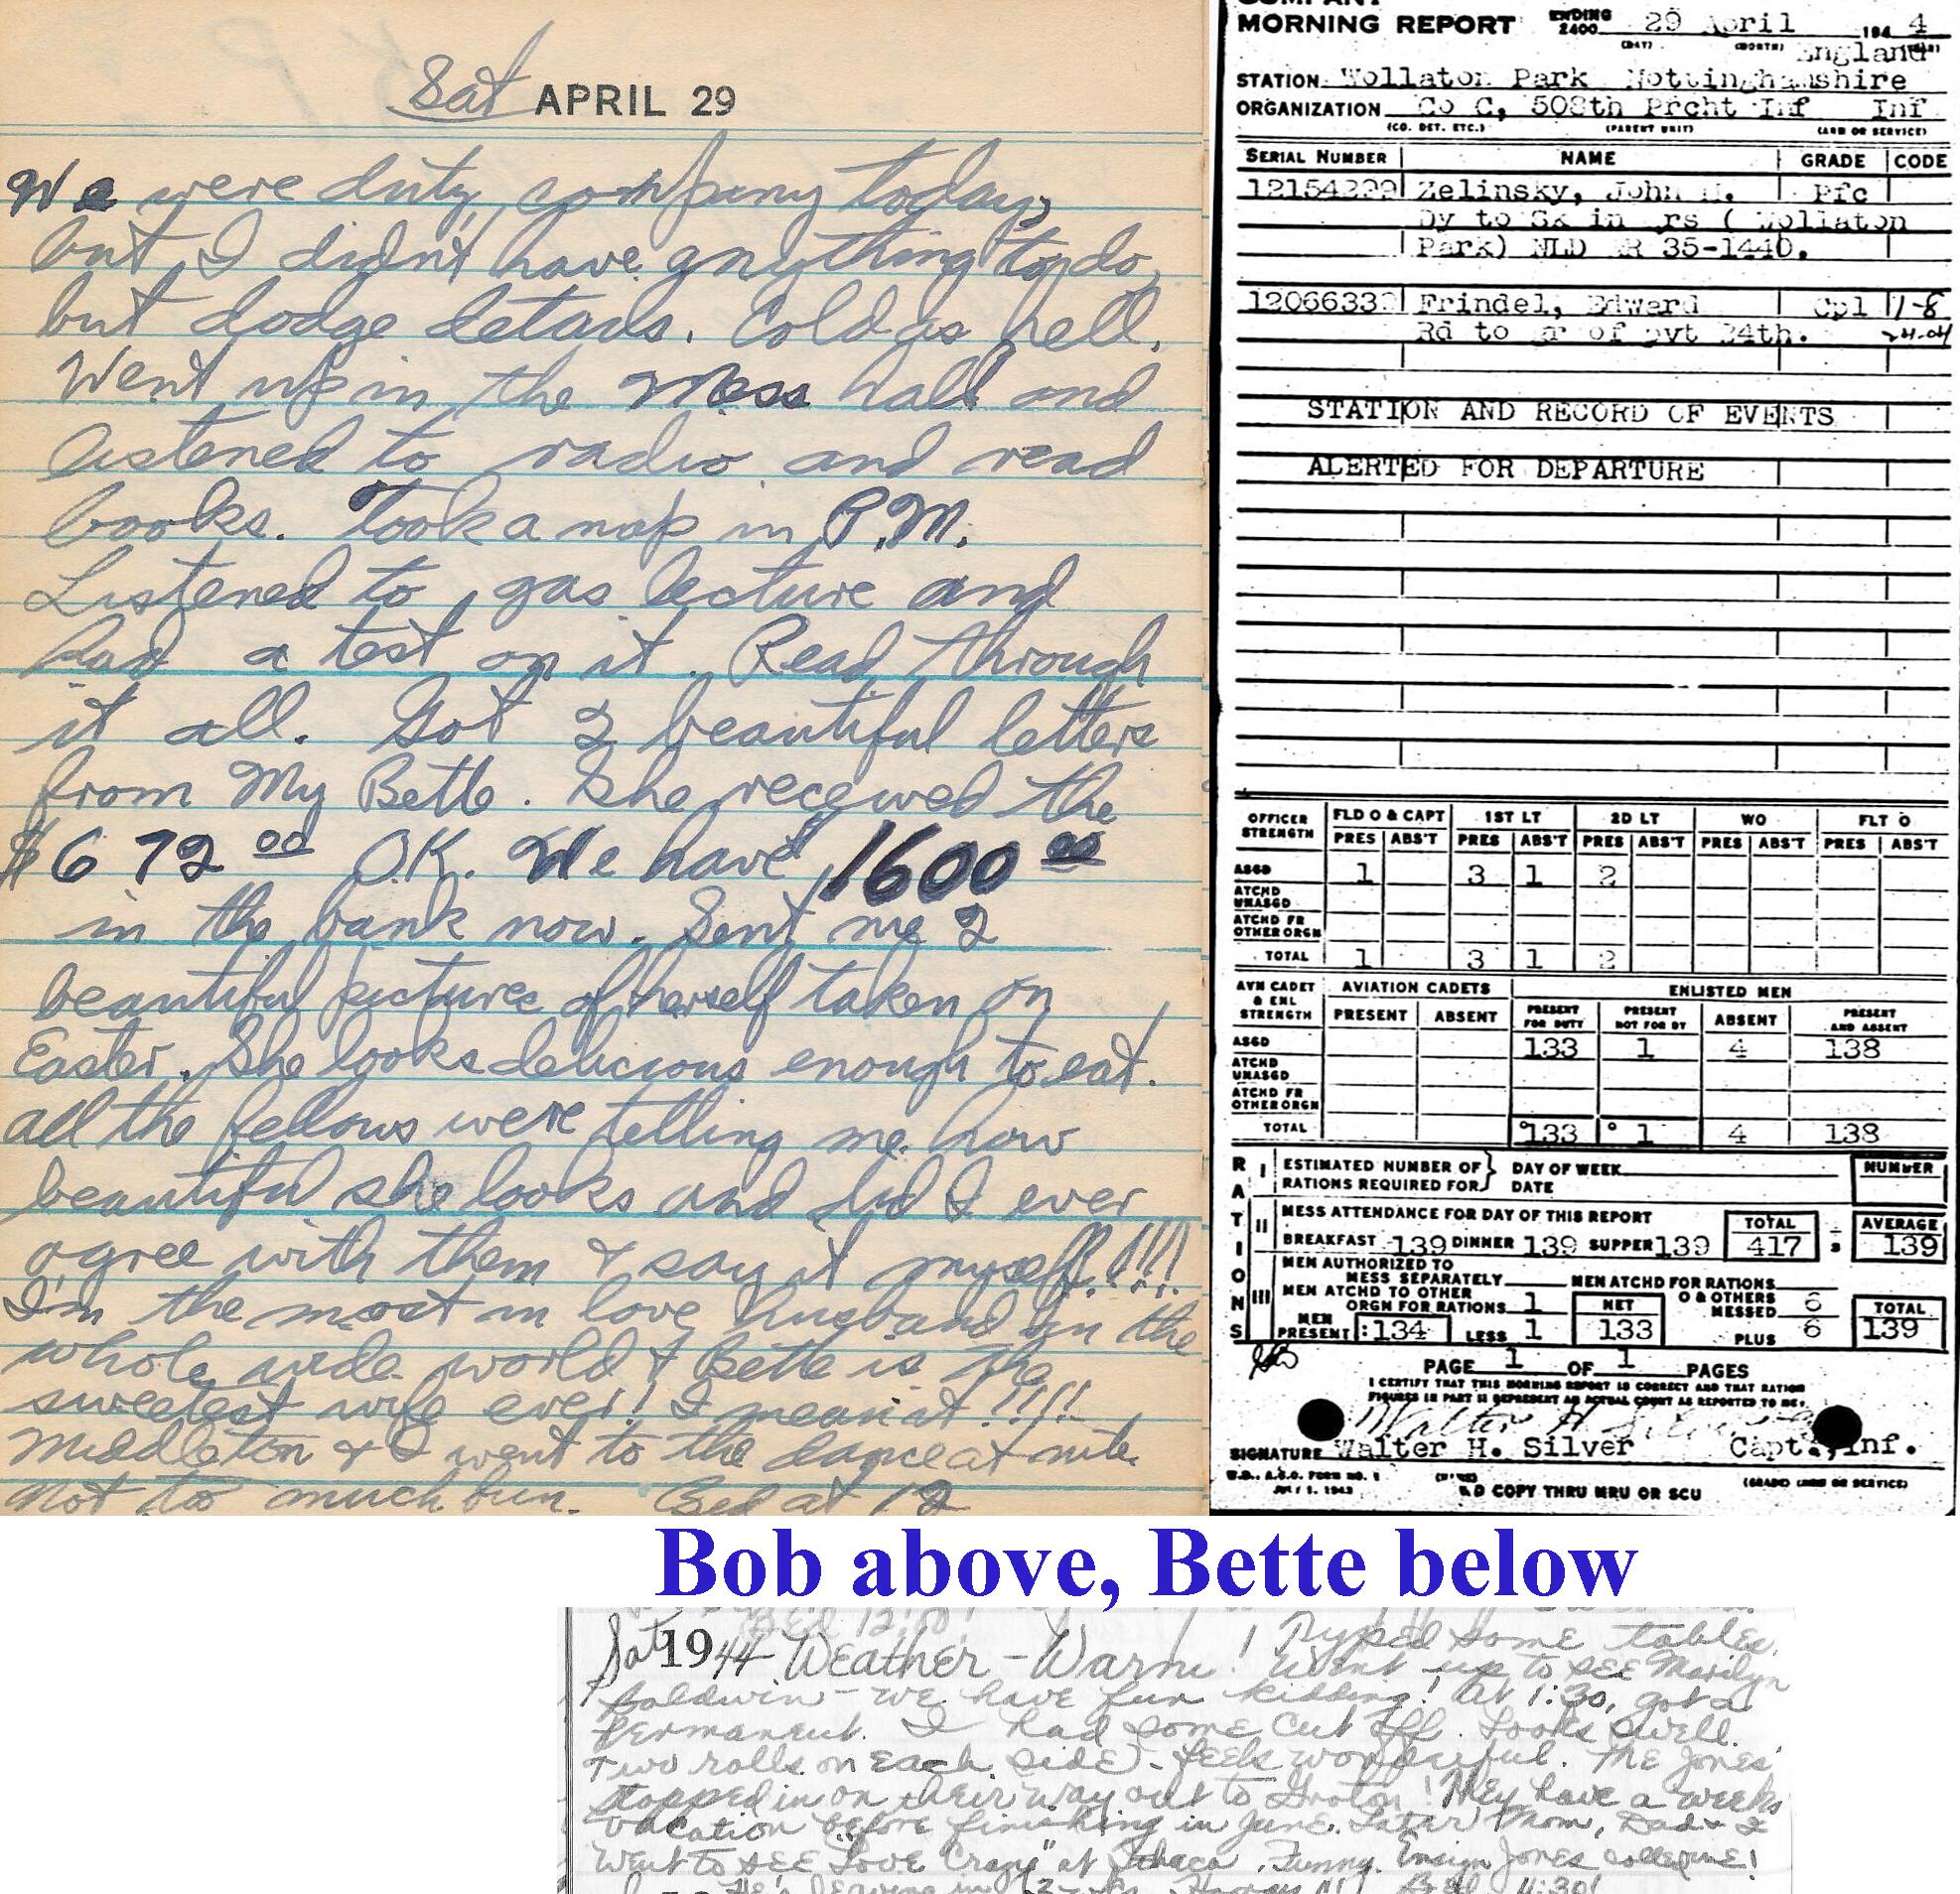 Sat APRIL 29
We were duty company today,
but I didn't have anything to do
but dodge details. Cold as hell.
Went up in the mess hall and
listened to radio and read
books. Took a nap in P.M.
Listened to gas lecture and
had a test on it. Read through
it all. Got 2 beautiful letters
from My Bette. She received the
$672 00 O.K. We have 1600 00
in the bank now. Sent me 2
beautiful pictures of herself taken on
Easter. She looks delicious enough to eat.
All the fellows were telling me how
beautiful she looks and did I ever
agree with them & say it myself!!!!!
I'm the most in love husband in the
whole wide world & Bette is the
sweetest wife ever! I mean it!!!!
Middleton & I went to the dance at nite.
Not too much fun. Bed at 12
MORNING REPORT ENDING 2400 29 April 194 4
(DAY) (MONTH) England
STATION Wollaton Park Nottinghamshire
ORGANIZATION Co C, 508th Prcht Inf Inf
(CO. DET. ETC.) (PARENT UNIT) (ARM OR SERVICE)
SERIAL NUMBER NAME GRADE CODE
12154299 Zelinsky, John Pfc
Dy to SK in qrs ( Wollaton
Park) NLD 35-1440.
1206633 Frindel, Edward Cpl
Rd to gr of pvt 24th.
STATION AND RECORD OF EVENTS
ALERTED FOR DEPARTURE
OFFICER STRENGTH FLD O & CAPT 1ST LT 2D LT WO FLT O
PRES ABS'T PRES ABS'T PRES ABS'T PRES ABS'T PRES ABS'T
ASGD 1 3 1 2
ATCHD UNASGD
ATCHD FR OTHER ORGN
TOTAL 1 3 1 2
AVN CADET & ENL STRENGTH AVIATION CADETS ENLISTED MEN
PRESENT ABSENT PRESENT FOR DUTY PRESENT NOT FOR DY ABSENT PRESENT AND ABSENT
ASGD 133 1 4 138
ATCHD UNASGD
ATCHD FR OTHER ORGN
TOTAL 133 1 4 138
RATIONS
I ESTIMATED NUMBER OF RATIONS REQUIRED FOR } DAY OF WEEK DATE NUMBER
II MESS ATTENDANCE FOR DAY OF THIS REPORT TOTAL AVERAGE
BREAKFAST 139 DINNER 139 SUPPER 139 417 ÷ 3 139
III MEN AUTHORIZED TO MESS SEPARATELY MEN ATCHD FOR RATIONS
MEN ATCHD TO OTHER ORGN FOR RATIONS 1 NET O & OTHERS MESSED 6 TOTAL
MEN PRESENT 134 LESS 1 133 PLUS 6 139
PAGE 1 OF 1 PAGES
I CERTIFY THAT THIS MORNING REPORT IS CORRECT AND THAT RATION
FIGURES IN PART II REPRESENT AN ACTUAL COUNT AS REPORTED TO ME.
Walter H Silver
SIGNATURE Walter H. Silver Capt., Inf.
W.D., A.G.O. FORM NO. 1 (NAME) (GRADE) (ARM OR SERVICE)
JULY 1, 1943 COPY THRU MRU OR SCU
Bob above, Bette below
Bed 12:00!
Sat 1944 Weather - Warm! Typed some tables.
Went up to see Marilyn
Baldwin - we have fun kidding! At 1:30, got a
permanent. I had some cut off. Looks swell.
Two rolls on each side) - feels wonderful. The Jones'
stopped in on their way out to Groton! They have a weeks
vacation before finishing in June. Later Mom, Dad & I
went to see "Love Crazy" at Ithaca. Funny. Ensign Jones
He's leaving in Bed 11:30!